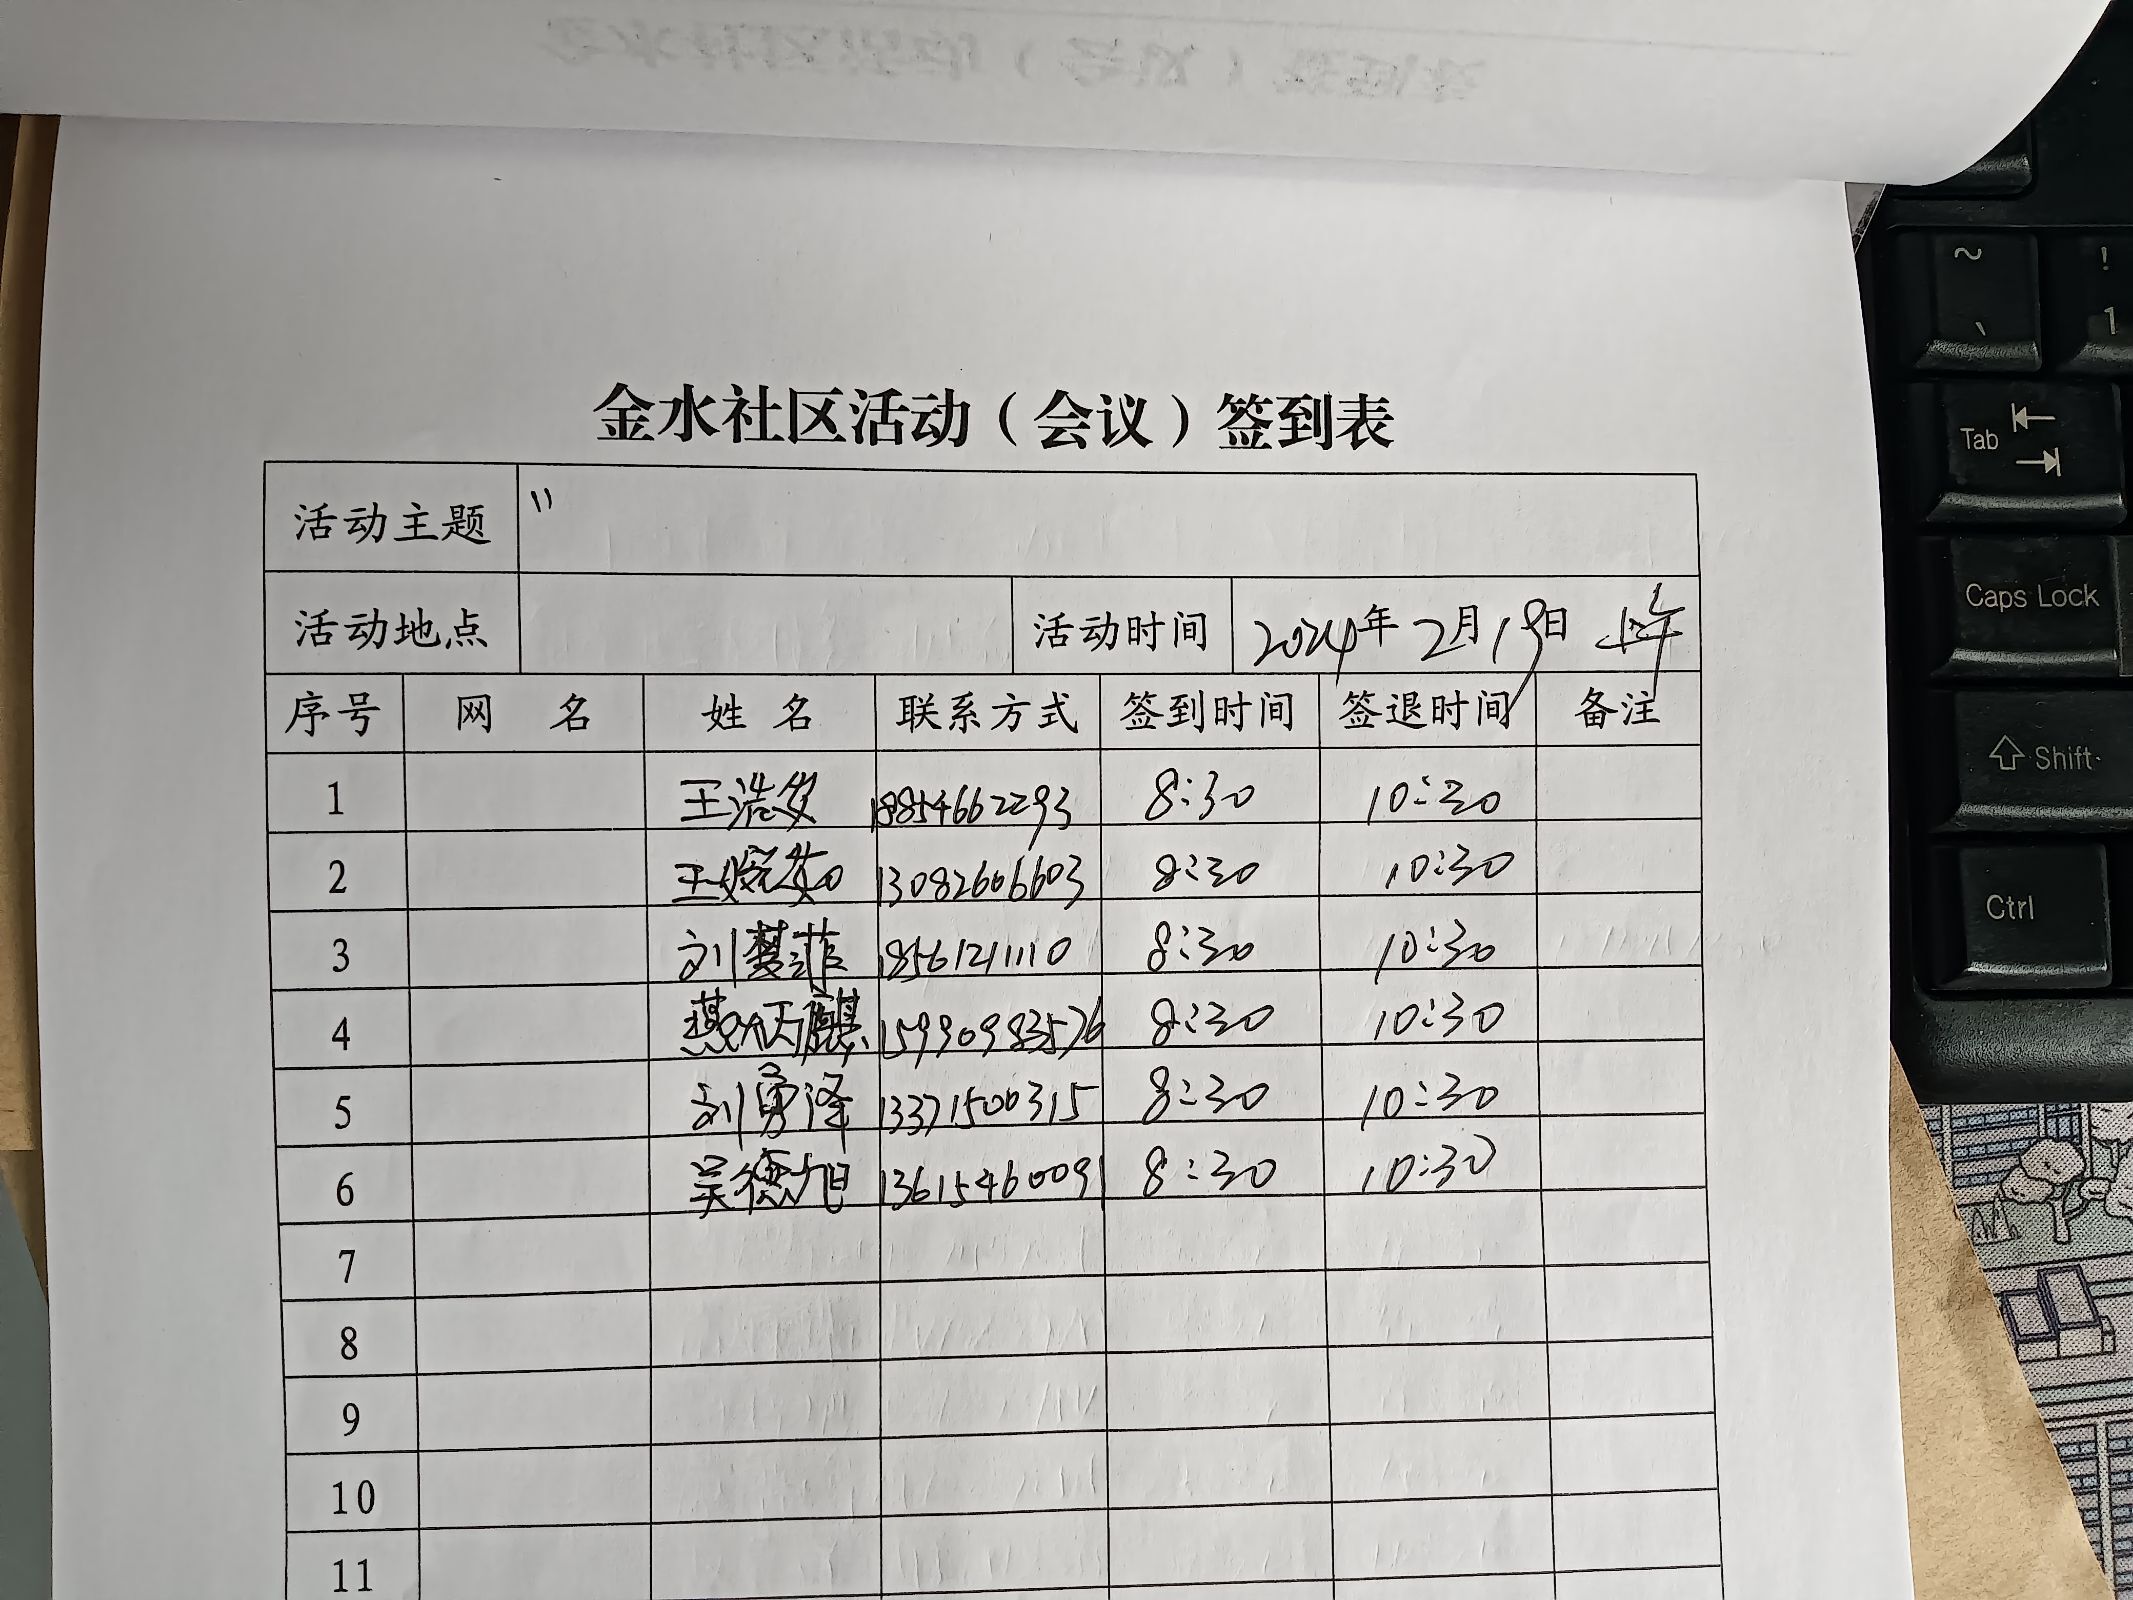 金水社区活动（会议）签到表
活动主题 "
活动地点 活动时间 2024年2月19日 上午
序号 网 名 姓 名 联系方式 签到时间 签退时间 备注
1 王浩 18854662293 8:30 10:30
2 王婉茹 13082606603 8:30 10:30
3 刘梦菲 1856121110 8:30 10:30
4 燕 麒 15990983576 8:30 10:30
5 刘勇泽 13371500315 8:30 10:30
6 吴德旭 13615460091 8:30 10:30
7
8
9
10
11
~
、
!
1
Tab
Caps Lock
Shift
Ctrl